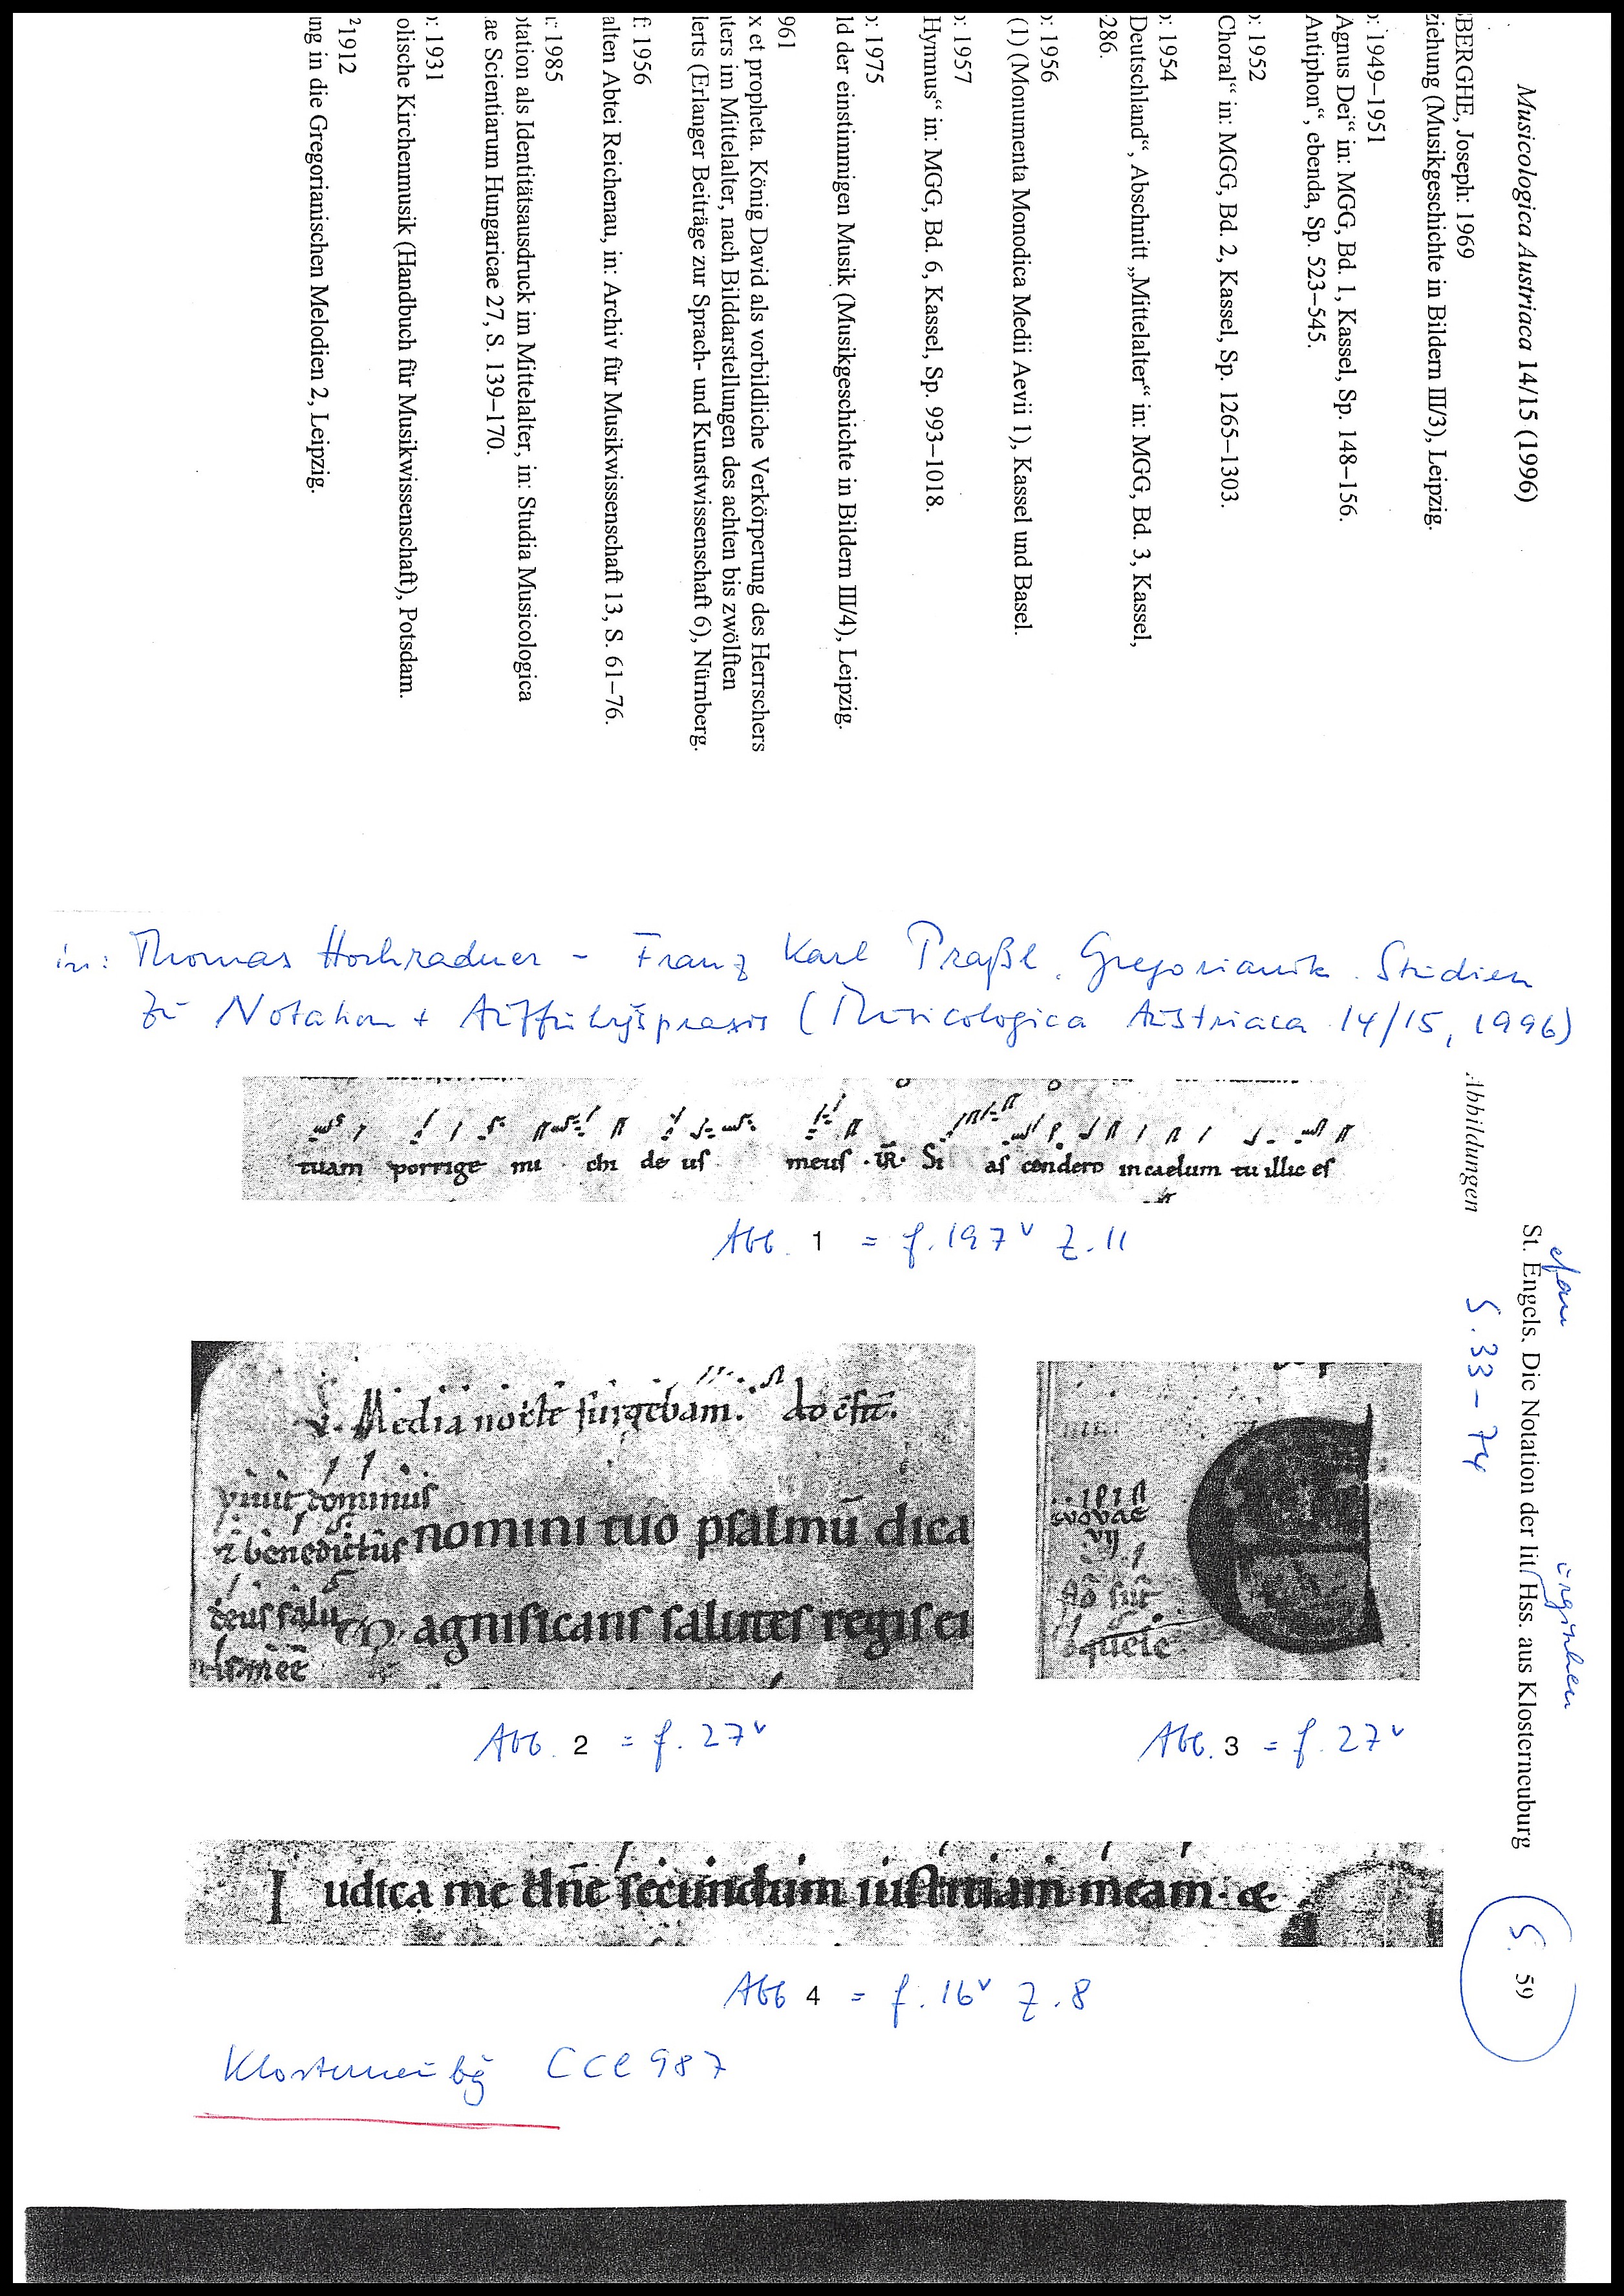 Musicologica Austriaca 14/15 (1996)
BERGHE, Joseph: 1969
ziehung (Musikgeschichte in Bildern III/3), Leipzig.
o: 1949–1951
Agnus Dei“ in: MGG, Bd. 1, Kassel, Sp. 148–156.
Antiphon“, ebenda, Sp. 523–545.
o: 1952
Choral“ in: MGG, Bd. 2, Kassel, Sp. 1265–1303.
o: 1954
Deutschland“, Abschnitt „Mittelalter“ in: MGG, Bd. 3, Kassel,
286.
o: 1956
(1) (Monumenta Monodica Medii Aevii 1), Kassel und Basel.
o: 1957
Hymnus“ in: MGG, Bd. 6, Kassel, Sp. 993–1018.
o: 1975
ld der einstimmigen Musik (Musikgeschichte in Bildern III/4), Leipzig.
961
x et propheta. König David als vorbildliche Verkörperung des Herrschers
iters im Mittelalter, nach Bilddarstellungen des achten bis zwölften
lerts (Erlanger Beiträge zur Sprach- und Kunstwissenschaft 6), Nürnberg.
f: 1956
alten Abtei Reichenau, in: Archiv für Musikwissenschaft 13, S. 61–76.
r: 1985
otation als Identitätsausdruck im Mittelalter, in: Studia Musicologica
ae Scientiarum Hungaricae 27, S. 139–170.
o: 1931
olische Kirchenmusik (Handbuch für Musikwissenschaft), Potsdam.
²1912
ung in die Gregorianischen Melodien 2, Leipzig.
in: Thomas Hochradner - Franz Karl Praßl, Gregorianik. Studien
zu Notation + Aufführungspraxis (Musicologica Austriaca 14/15, 1996)
St. Engels. Die Notation der lit. Hss. aus Klosterneuburg
efan
urgischen
S. 59
S. 33–74
Abbildungen
tuam porrige mi chi de us meus . R. Si as cendero in caelum tu illic es
Abb. 1 = f. 197v Z. 11
v. Media nocte surgebam. Ad
vivit dominus
nomini tuo psalmū dica
& benedictus
deus salu
agnificans salutes regis ei
Abb. 2 = f. 27v
evovae
vij
quele
Abb. 3 = f. 27v
Iudica me dn̄e secundum iustitiam meam. &.
Abb 4 = f. 16v Z. 8
Klosterneubg CCl 987